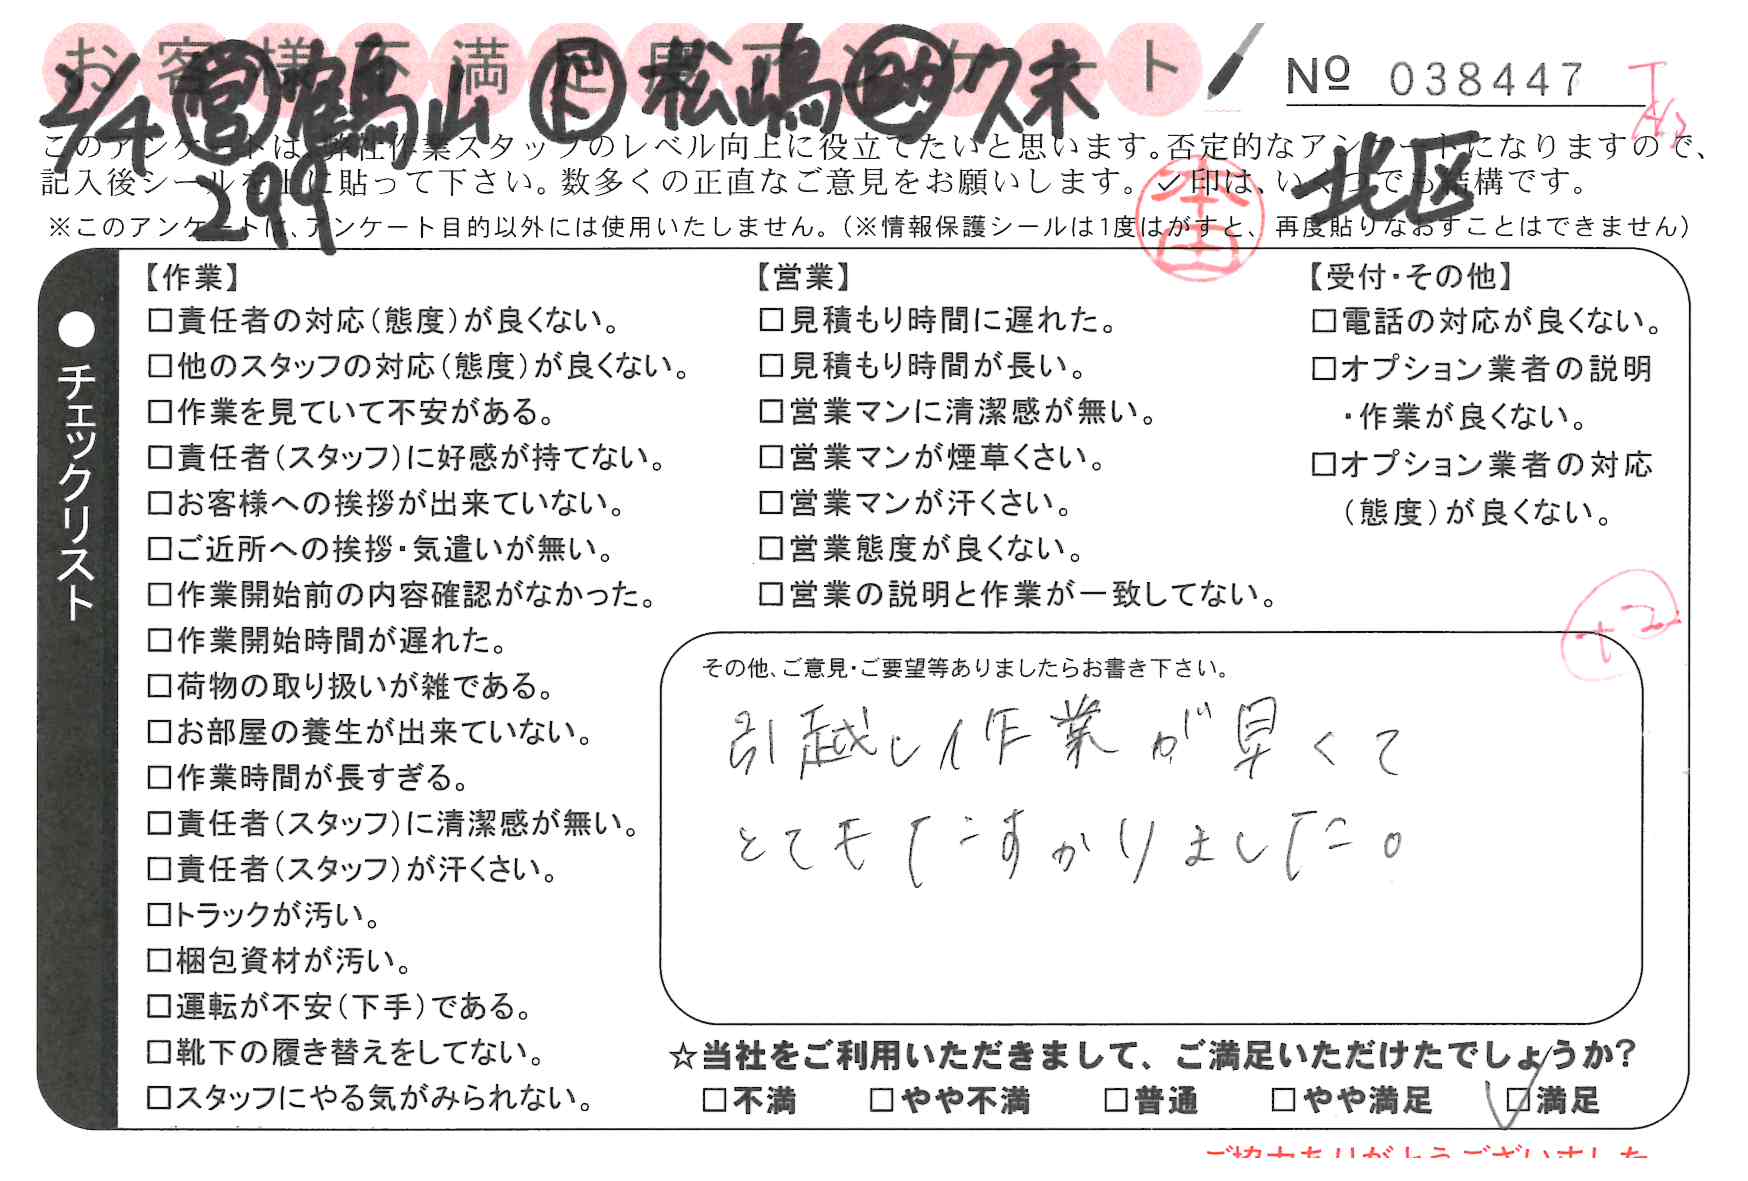 お客様不満足度アンケート
№ 038447
2/4 営 鶴山 ド 松嶋 助 久末
299
北区
このアンケートは、弊社作業スタッフのレベル向上に役立てたいと思います。否定的なアンケートになりますので、
記入後シールを上に貼って下さい。数多くの正直なご意見をお願いします。✓印は、いくつでも結構です。
※このアンケートは、アンケート目的以外には使用いたしません。（※情報保護シールは1度はがすと、再度貼りなおすことはできません）
本田
●チェックリスト
【作業】
□責任者の対応（態度）が良くない。
□他のスタッフの対応（態度）が良くない。
□作業を見ていて不安がある。
□責任者（スタッフ）に好感が持てない。
□お客様への挨拶が出来ていない。
□ご近所への挨拶・気遣いが無い。
□作業開始前の内容確認がなかった。
□作業開始時間が遅れた。
□荷物の取り扱いが雑である。
□お部屋の養生が出来ていない。
□作業時間が長すぎる。
□責任者（スタッフ）に清潔感が無い。
□責任者（スタッフ）が汗くさい。
□トラックが汚い。
□梱包資材が汚い。
□運転が不安（下手）である。
□靴下の履き替えをしてない。
□スタッフにやる気がみられない。
【営業】
□見積もり時間に遅れた。
□見積もり時間が長い。
□営業マンに清潔感が無い。
□営業マンが煙草くさい。
□営業マンが汗くさい。
□営業態度が良くない。
□営業の説明と作業が一致してない。
【受付・その他】
□電話の対応が良くない。
□オプション業者の説明
・作業が良くない。
□オプション業者の対応
（態度）が良くない。
+2
その他、ご意見・ご要望等ありましたらお書き下さい。
引越し作業が早くて
とてもたすかりました。
☆当社をご利用いただきまして、ご満足いただけたでしょうか？
□不満 □やや不満 □普通 □やや満足 ☑満足
ご協力ありがとうございました